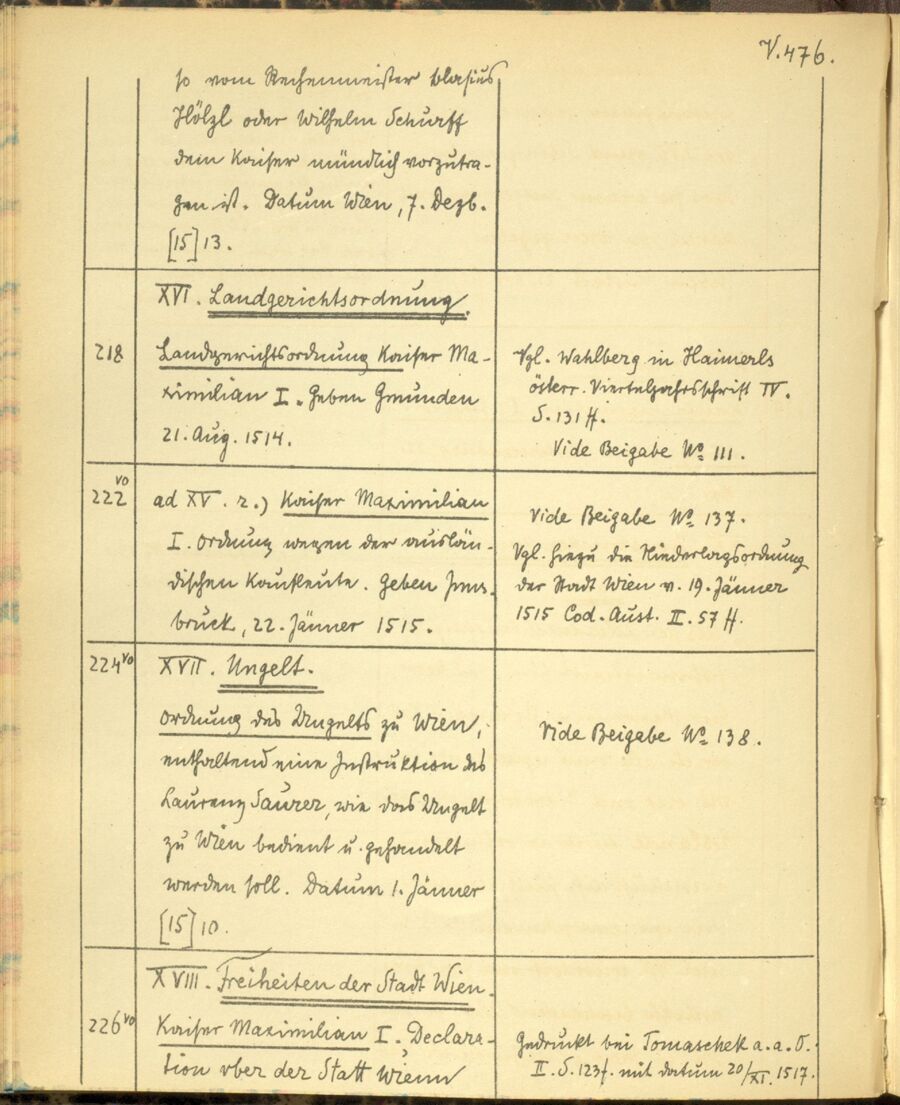 V. 476.
so vom Rechenmeister Blasius
Hölzl oder Wilhelm Schurff
dem Kaiser mündlich vorzutra-
gen ist. Datum Wien, 7. Dezb.
[15]13.
XVI. Landgerichtsordnung.
218
Landgerichtsordnung Kaiser Ma-
ximilian I. Geben Gmunden
21. Aug. 1514.
Vgl. Wahlberg in Haimerls
österr. Vierteljahrsschrift IV.
S. 131 ff.
Vide Beigabe No. 111.
222 vo
ad XV. 2.) Kaiser Maximilian
I. Ordnung wegen der auslän-
dischen Kaufleute. Geben Jnns-
bruck, 22. Jänner 1515.
Vide Beigabe No. 137.
Vgl. hiezu die Niederlagsordnung
der Stadt Wien v. 19. Jänner
1515 Cod. Aust. II. 57 ff.
224 vo
XVII. Ungelt.
Ordnung des Ungelts zu Wien,
enthaltend eine Jnstruktion des
Laurenz Saurer, wie das Ungelt
zu Wien bedient u. gehandelt
werden soll. Datum 1. Jänner
[15]10.
Vide Beigabe No. 138.
XVIII. Freiheiten der Stadt Wien.
226 vo
Kaiser Maximilian I. Declara-
tion vber der Statt Wienn
Gedruckt bei Tomaschek a. a. O.
II. S. 123 f. mit Datum 20/XI. 1517.